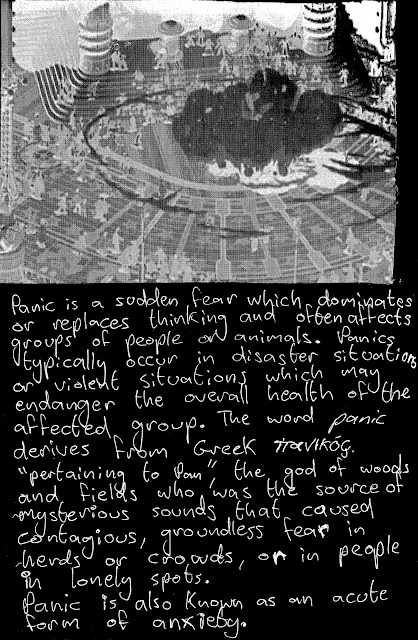 Panic is a sudden fear which dominates
or replaces thinking and often affects
groups of people or animals. Panics
typically occur in disaster situations
or violent situations which may
endanger the overall health of the
affected group. The word panic
derives from Greek πανικός.
"pertaining to Pan", the god of woods
and fields who was the source of
mysterious sounds that caused
contagious, groundless fear in
herds or crowds, or in people
in lonely spots.
Panic is also known as an acute
form of anxiety.